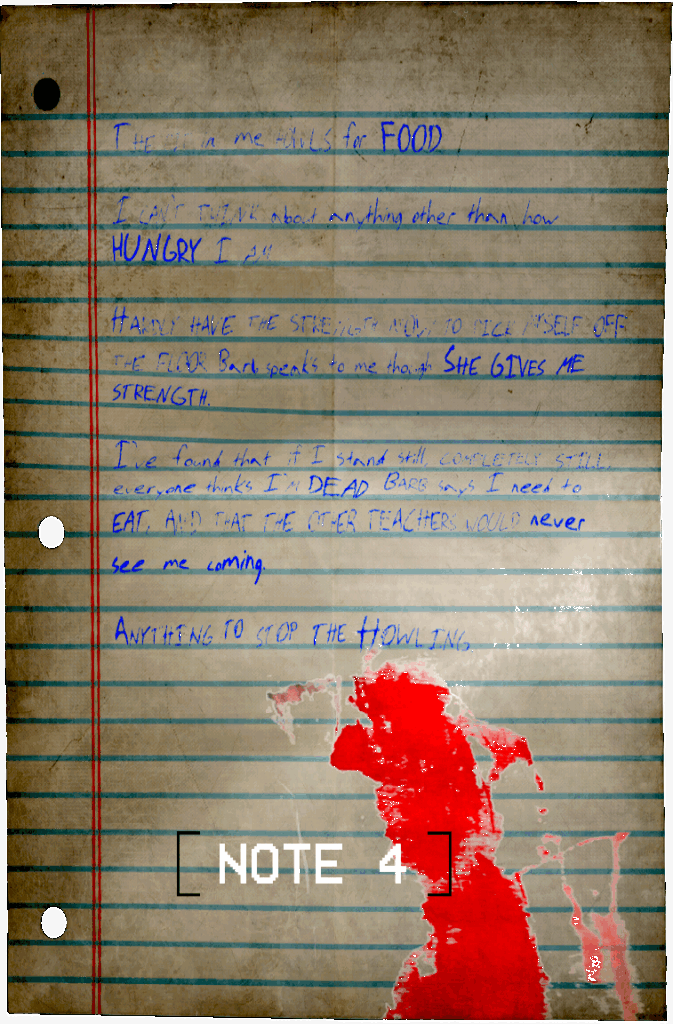 THE in me HOWLS for FOOD
I CAN'T THINK about anything other than how
HUNGRY I AM
HARDLY HAVE THE STRENGTH NOW TO PICK MYSELF OFF
THE FLOOR Barb speaks to me though SHE GIVES ME
STRENGTH.
I've found that if I stand still, COMPLETELY STILL,
everyone thinks I'm DEAD BARB says I need to
EAT, AND THAT THE OTHER TEACHERS WOULD never
see me coming.
ANYTHING TO STOP THE HOWLING
NOTE 4